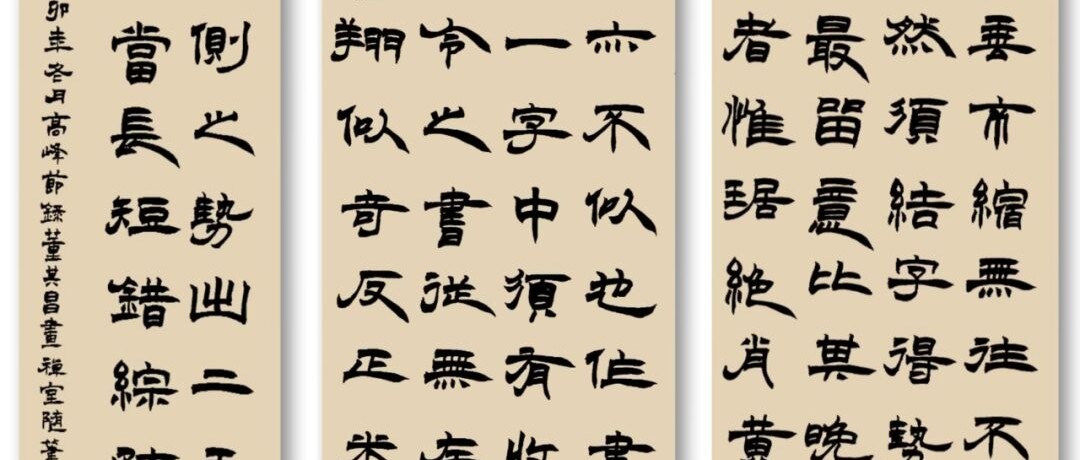 垂不縮無往不
然須結字得勢
最留意比其晚
者惟琚絕肖黃
亦不似也作書
一字中須有收
令之書從無左
翔似奇反正米
側之勢出二王
當長短錯綜疏
卯年冬月高峰節錄董其昌畫禪室隨筆